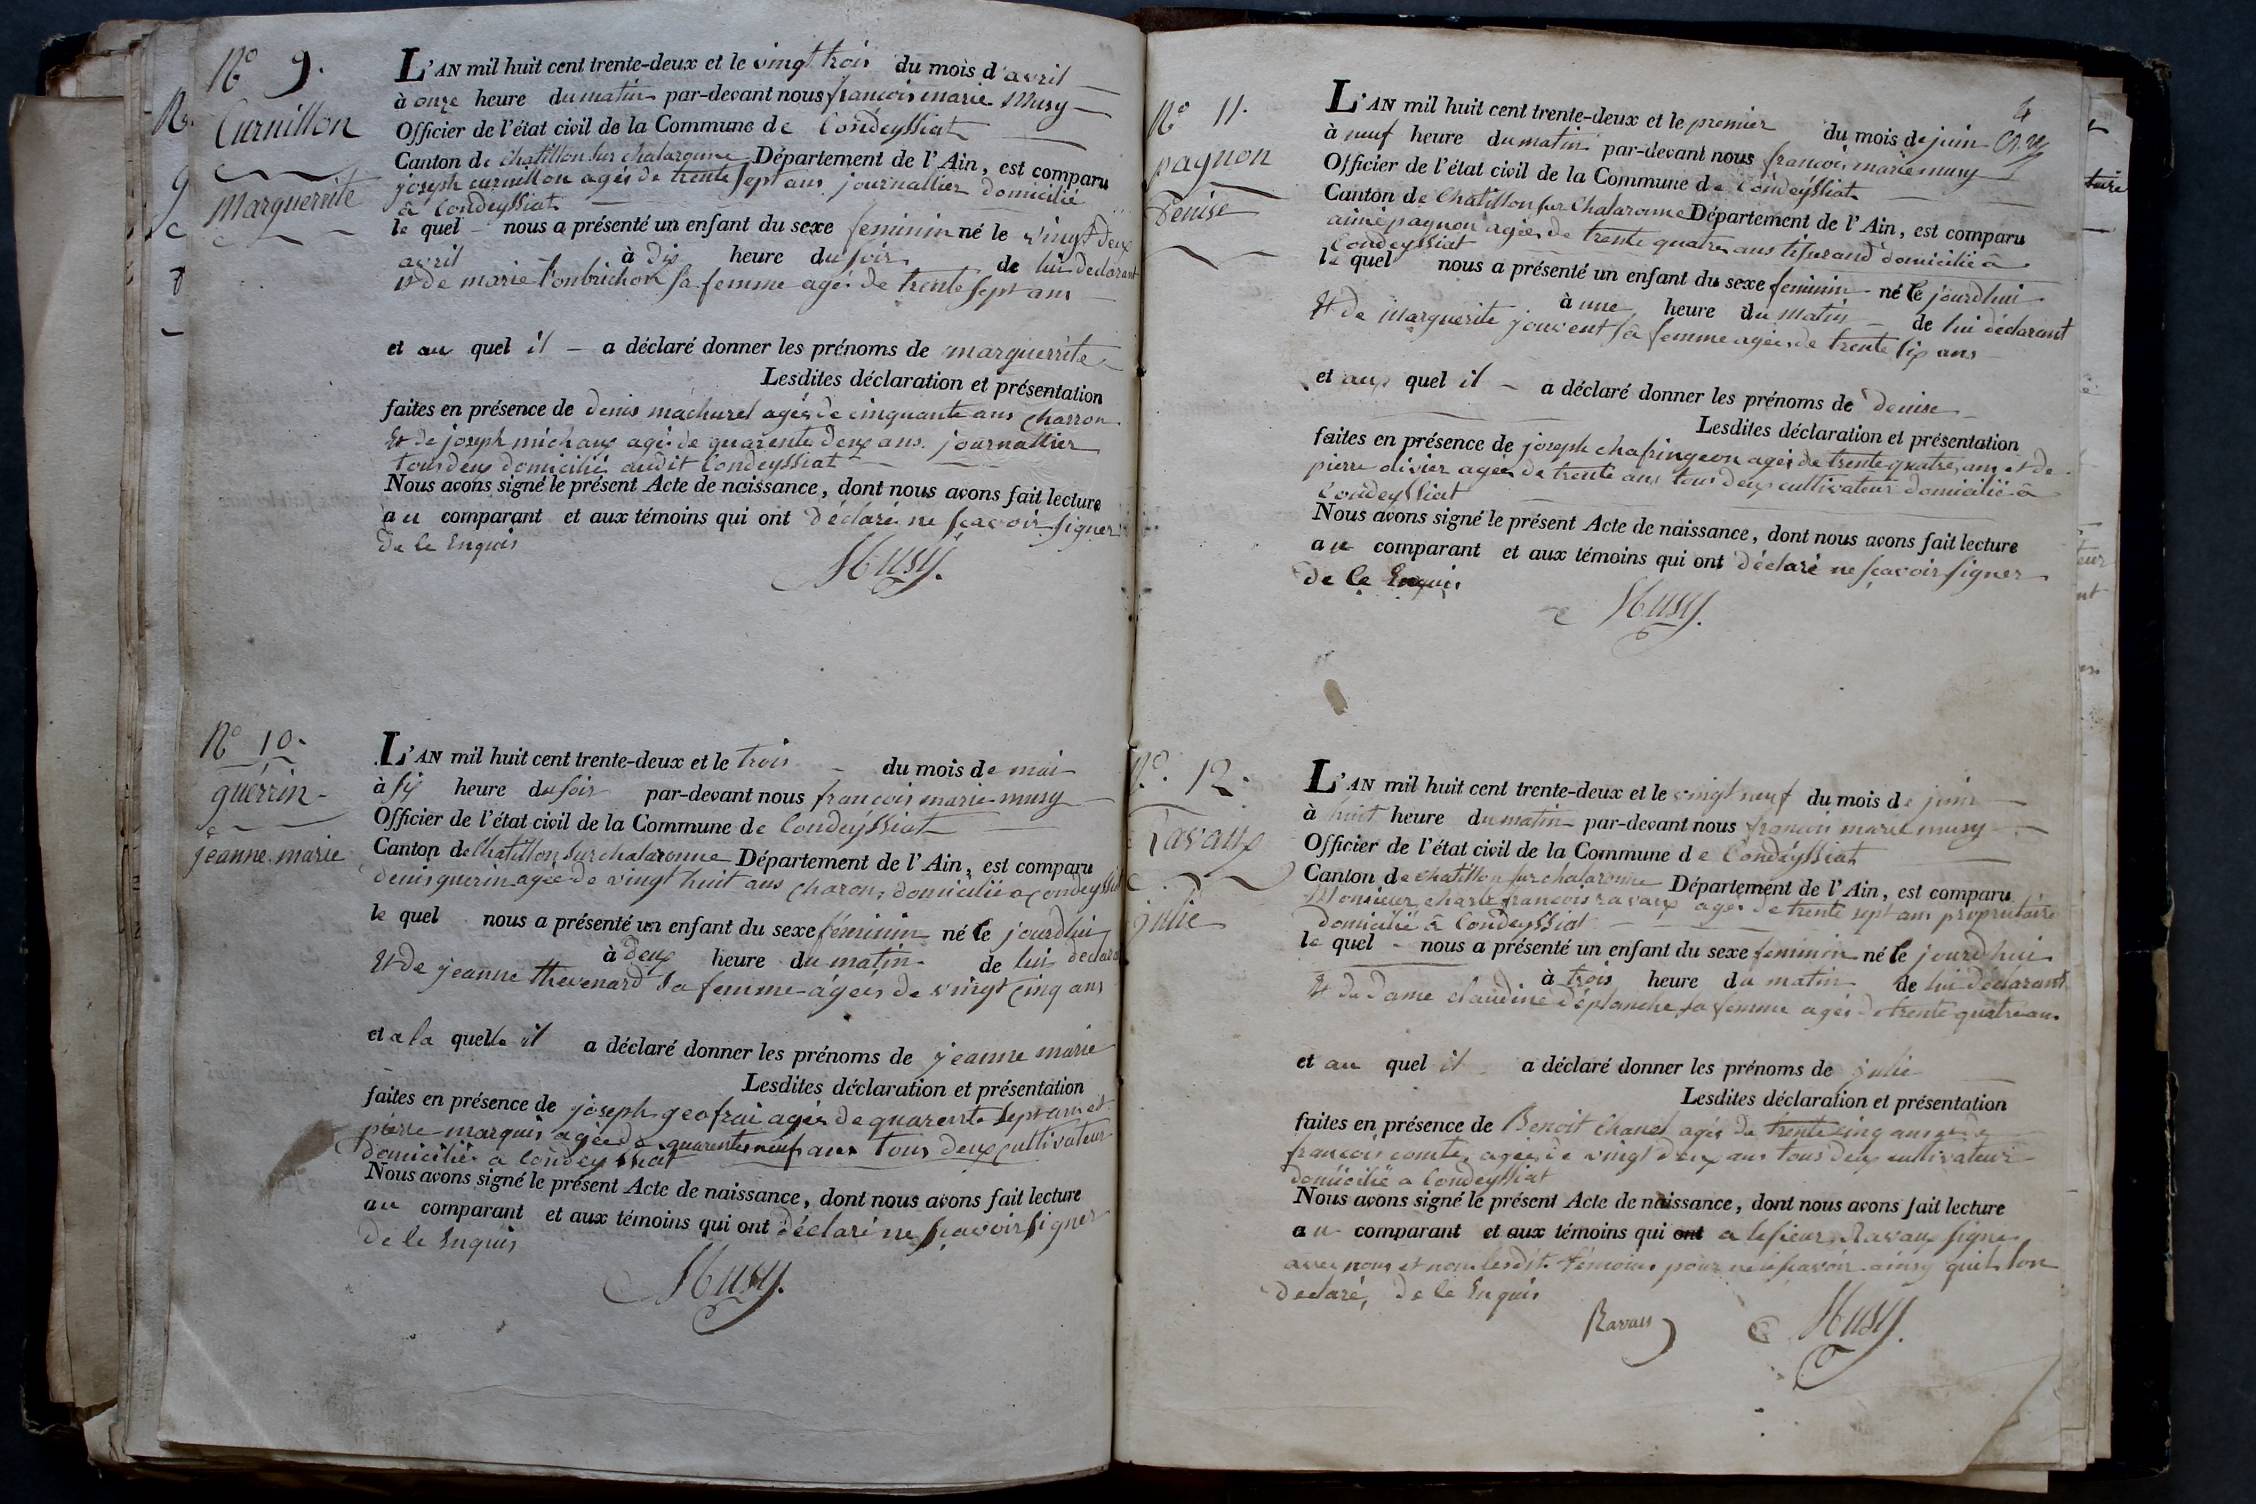 N° 9.
Curnillon
Marguerrite
L'AN mil huit cent trente-deux et le vingt trois du mois d'avril
à onze heure du matin par-devant nous francois marie Musy
Officier de l'état civil de la Commune de Condeyssiat
Canton de chatillon sur chalaronne Département de l'Ain, est comparu
joseph curnillon agés de trente sept ans journallier domicilié
à Condeyssiat
le quel nous a présenté un enfant du sexe feminin né le vingt deux
avril à dix heure du soir de lui declarant
et de marie sa femme agés de trente sept ans
et au quel il a déclaré donner les prénoms de marguerrite
Lesdites déclaration et présentation
faites en présence de denis machurel agés de cinquante ans charron
Et de joseph michaux agés de quarente deux ans journallier
tous deux domicilié audit Condeyssiat
Nous avons signé le présent Acte de naissance, dont nous avons fait lecture
au comparant et aux témoins qui ont déclaré ne scavoir signer
de ce Enquis
Musy.
N° 10.
guérrin
jeanne marie
L'AN mil huit cent trente-deux et le trois du mois de mai
à six heure du soir par-devant nous francois marie musy
Officier de l'état civil de la Commune de Condeyssiat
Canton de Chatillon sur chalaronne Département de l'Ain, est comparu
denis guerin agée de vingt huit ans charon, domicilié a Condeyssiat
le quel nous a présenté un enfant du sexe féminin né le jourdhui
à deux heure du matin de lui declara
Et de jeanne thevenard sa femme agées de vingt cinq ans
et a la quelle il a déclaré donner les prénoms de jeanne marie
Lesdites déclaration et présentation
faites en présence de joseph geofrai agés de quarente sept ans et
pierre marquis agée de quarente neuf ans tous deux cultivateur
domicilié a Condeyssiat
Nous avons signé le présent Acte de naissance, dont nous avons fait lecture
au comparant et aux témoins qui ont déclaré ne scavoir signer
de ce Enquis
Musy.
N° 11.
pagnon
Denise
L'AN mil huit cent trente-deux et le premier du mois de juin
à neuf heure du matin par-devant nous francois marie musy
Officier de l'état civil de la Commune de Condeyssiat
Canton de Chatillon sur Chalaronne Département de l'Ain, est comparu
aimé pagnon agées de trente quatre ans tisserand domicilié à
Condeyssiat
le quel nous a présenté un enfant du sexe feminin né le jourdhui
à une heure du matin de lui déclarant
Et de Marguerite jouvent sa femme agées de trente six ans
et aux quel il a déclaré donner les prénoms de denise
Lesdites déclaration et présentation
faites en présence de joseph chafringeon agés de trente quatre ans et de
pierre olivier agées de trente ans tous deux cultivateur domicilié à
Condeyssiat
Nous avons signé le présent Acte de naissance, dont nous avons fait lecture
au comparant et aux témoins qui ont déclaré ne scavoir signer
de ce Enquis
Musy.
N°. 12.
Ravaux
julie
L'AN mil huit cent trente-deux et le vingt neuf du mois de juin
à huit heure du matin par-devant nous francois marie musy
Officier de l'état civil de la Commune de Condeyssiat
Canton de chatillon sur chalaronne Département de l'Ain, est comparu
Monsieur charle francois ravaux agés de trente sept ans proprietaire
domicilié à Condeyssiat
le quel nous a présenté un enfant du sexe feminin né le jourdhui
à trois heure du matin de lui déclarant
Et de dame claudine déplanche sa femme agés de trente quatre ans
et au quel il a déclaré donner les prénoms de julie
Lesdites déclaration et présentation
faites en présence de Benoit Chanel agés de trente cinq ans et de
francois comte, agées de vingt deux ans tous deux cultivateur
domicilié a Condeyssiat
Nous avons signé le présent Acte de naissance, dont nous avons fait lecture
au comparant et aux témoins qui ont a le sieur Ravaux signe
avec nous et non lesdit témoins pour ne scavoir ainsy quil lon
declaré, de ce Enquis
Ravaux Musy.